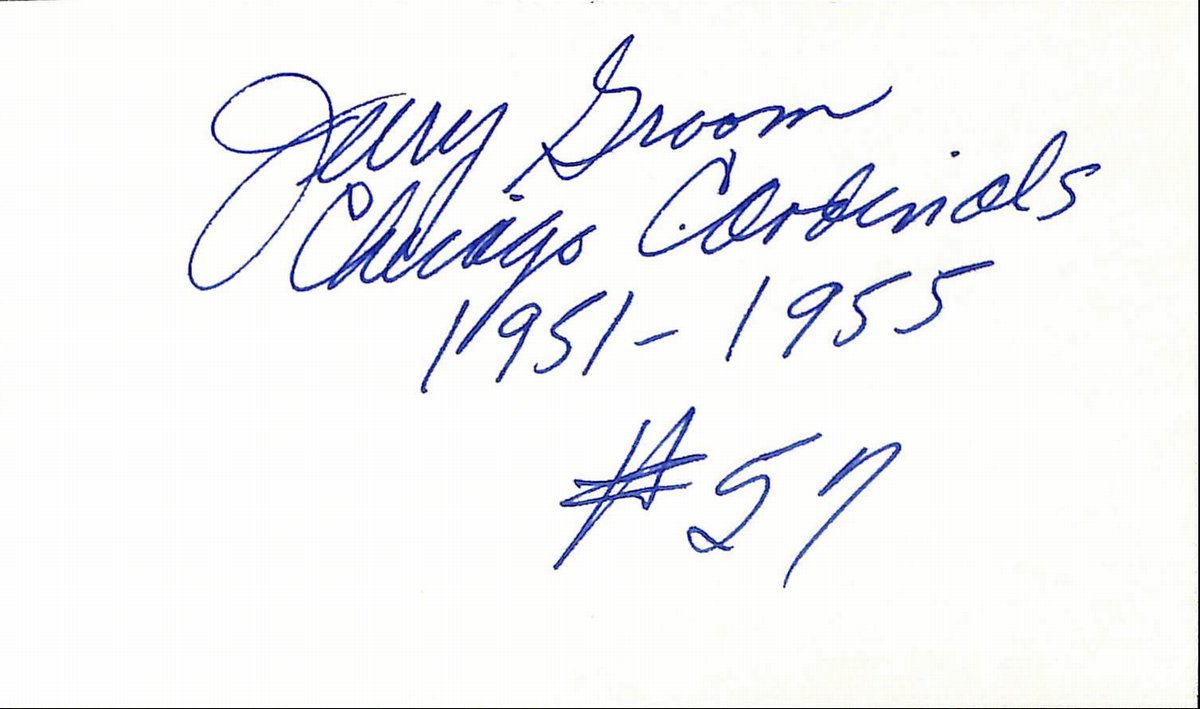 Jerry Groom
Chicago Cardinals
1951-1955
#57